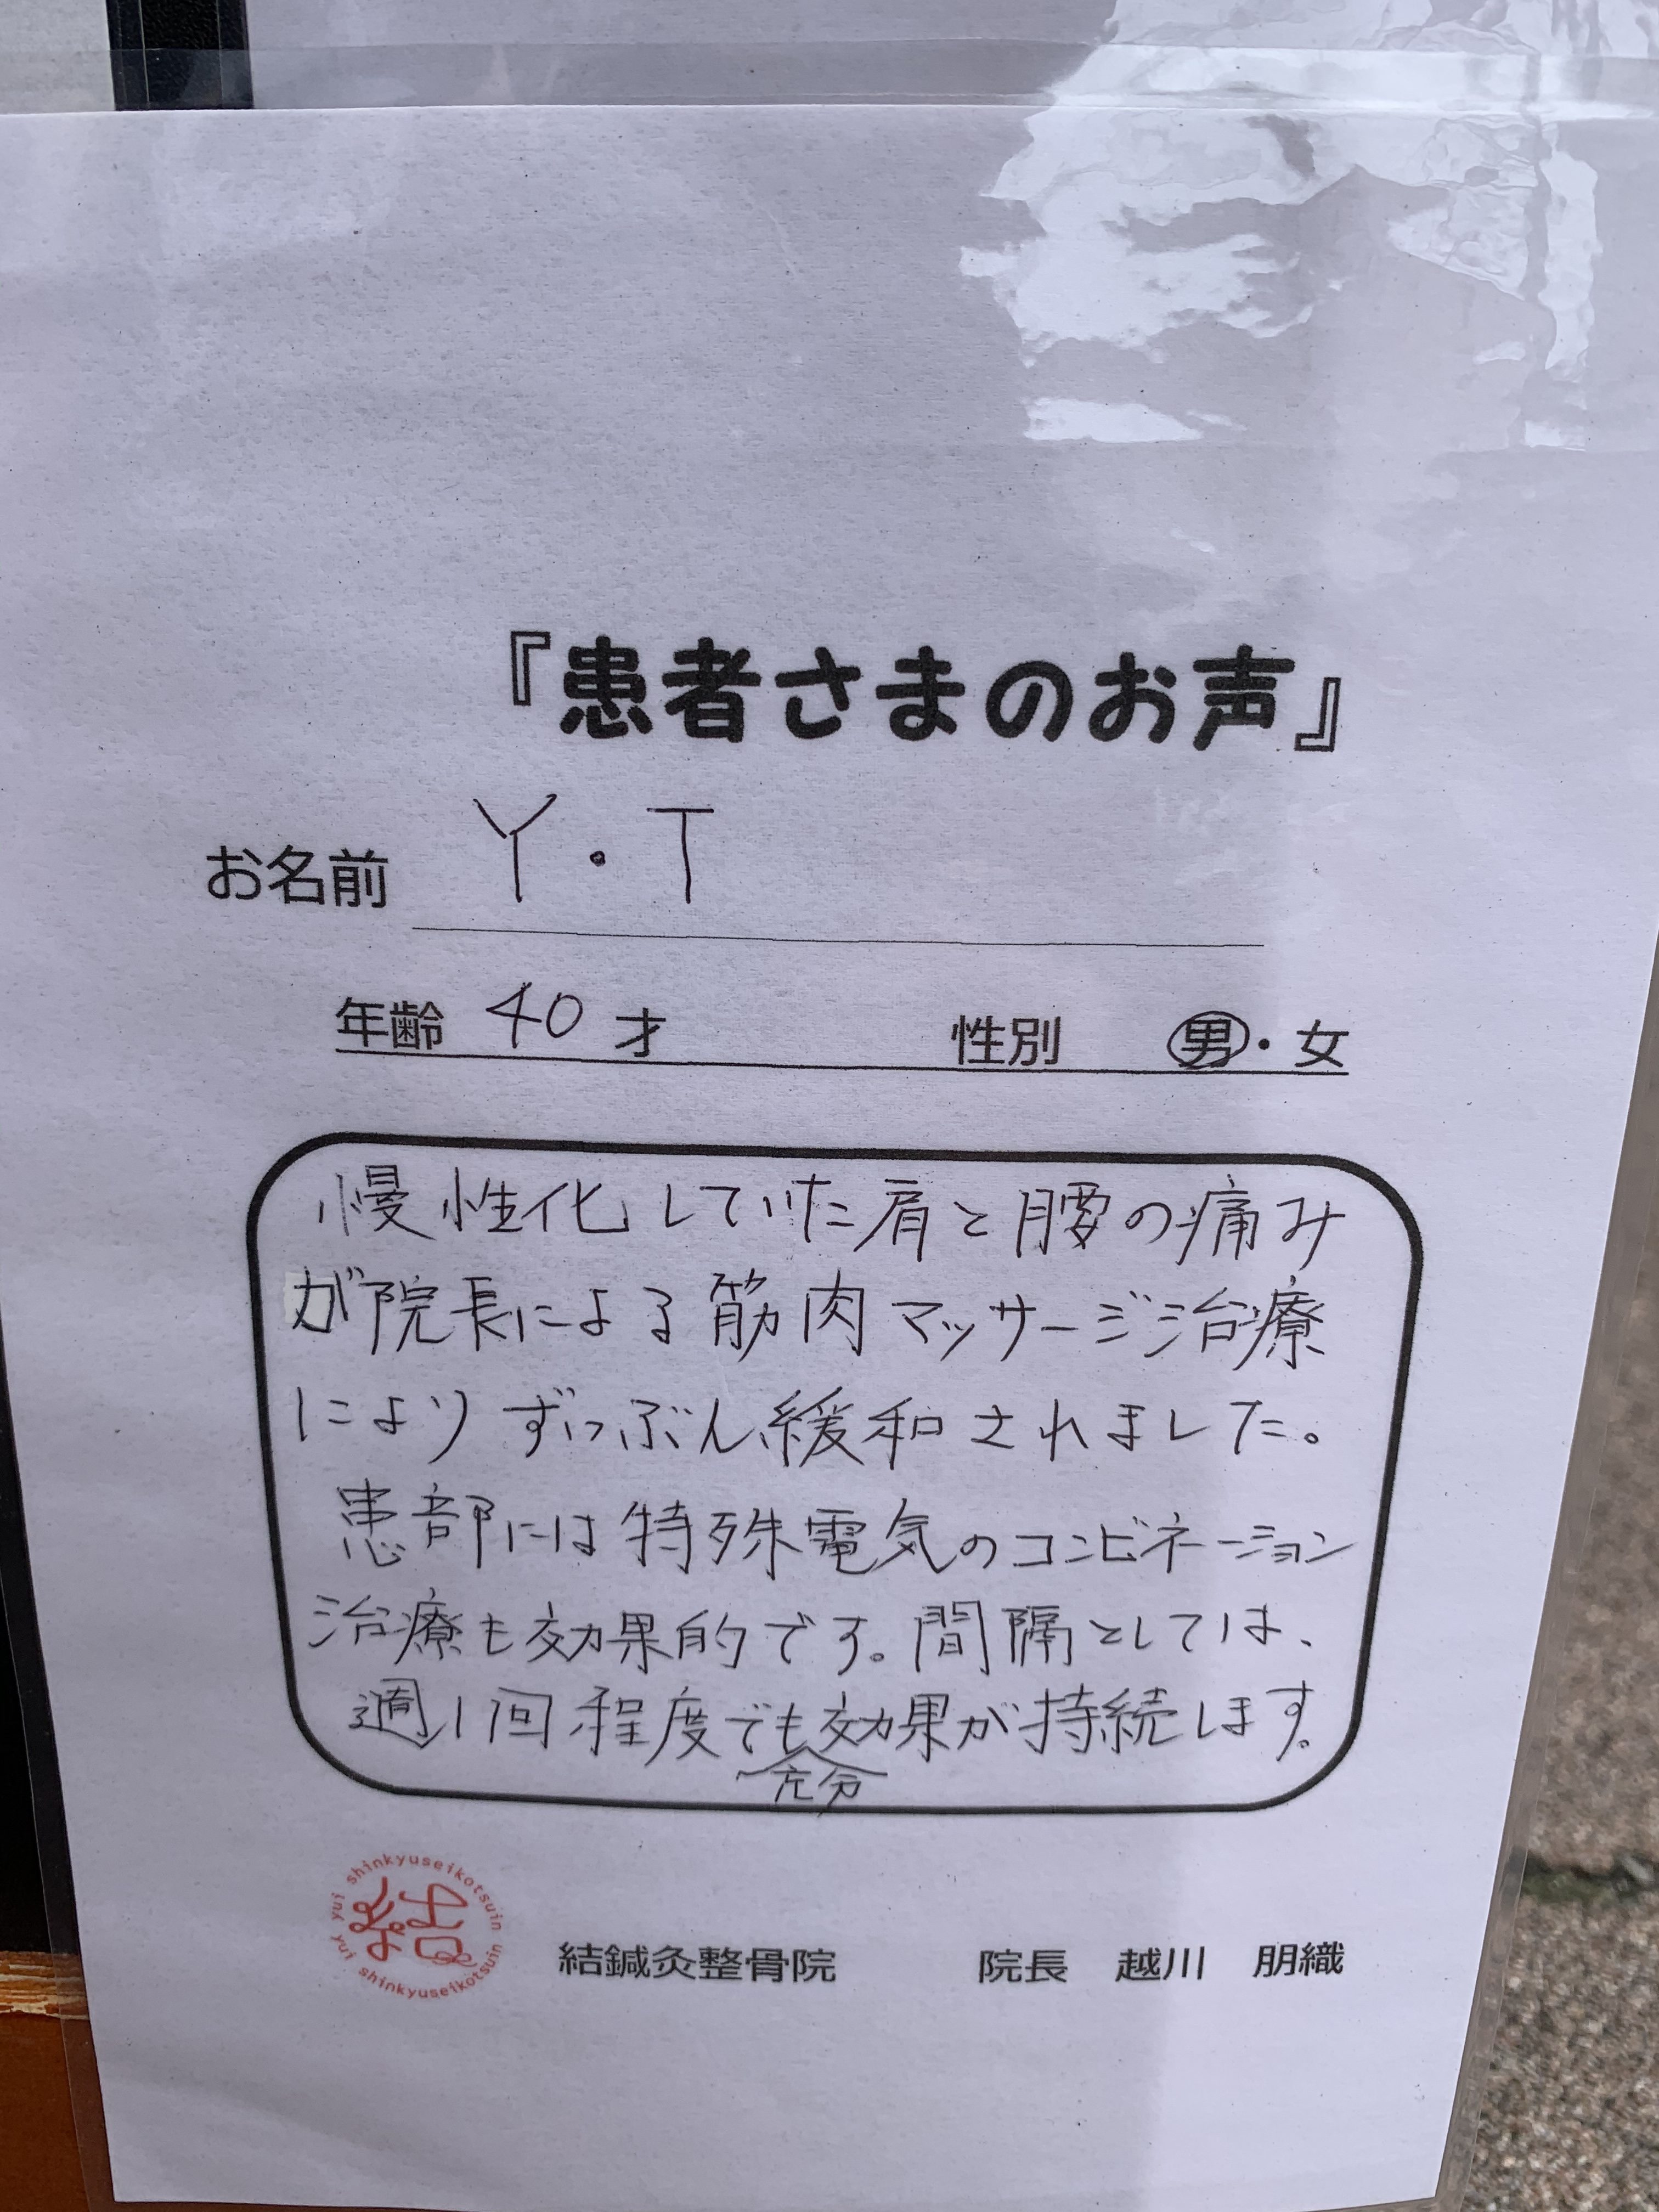 『患者さまのお声』
お名前 Y・T
年齢 40 才 性別 男・女
慢性化していた肩と腰の痛み
が院長による筋肉マッサージ治療
によりずいぶん緩和されました。
患部には特殊電気のコンビネーション
治療も効果的です。間隔としては、
週1回程度でも効果が持続します。
充分
yui shinkyuseikotsuin yui shinkyuseikotsuin
結
結鍼灸整骨院 院長 越川 朋織